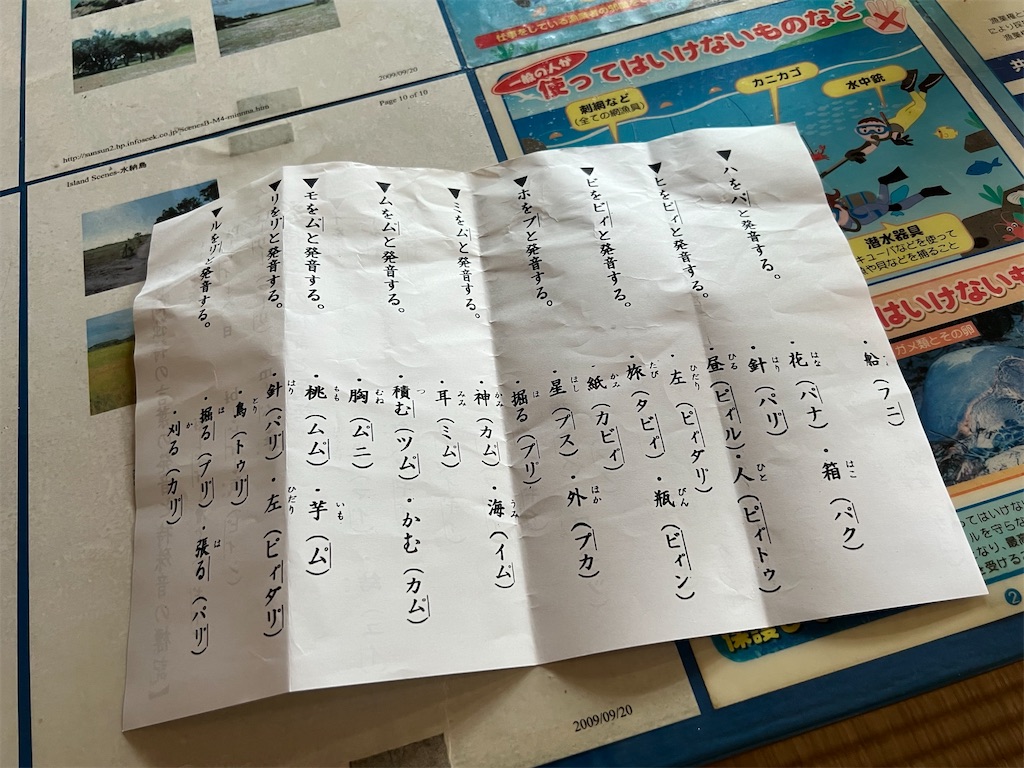 http://sunsun2.hp.infoseek.co.jp/ScenesB-M4-minnna.htm
Page 10 of 10
2009/09/20
Island Scenes-水納島
一般の人が
使ってはいけないものなど
刺網など
(全ての網漁具)
カニカゴ
水中銃
潜水器具
などを使って
や貝などを捕ること
はいけないも
ガメ類とその卵
❷
・船(フニ)
▼ハをパと発音する。 ・花(パナ)・箱(パク)
はな はこ
・針(パリ゜)
はり
▼ヒをピィと発音する。 ・昼(ピィル)・人(ピィトゥ)
ひる ひと
・左(ピィダリ゜)
ひだり
▼ビをビィと発音する。 ・旅(タビィ)・瓶(ビィン)
たび びん
・紙(カビィ)
かみ
▼ホをプと発音する。 ・星(プス)・外(プカ)
ほし ほか
・掘る(プリ゜)
ほ
▼ミをム゜と発音する。 ・神(カム゜)・海(イム゜)
かみ うみ
・耳(ミム゜)
みみ
▼ムをム゜と発音する。 ・積む(ツム゜)・かむ(カム゜)
つ
・胸(ム゜ニ)
むね
▼モをム゜と発音する。 ・桃(ムム゜)・芋(ム゜)
もも いも
▼リをリ゜と発音する。 ・針(パリ゜)・左(ピィダリ゜)
はり ひだり
・鳥(トゥリ゜)
とり
▼ルをリ゜と発音する。 ・掘る(プリ゜)・張る(パリ゜)
ほ は
・刈る(カリ゜)
か
2009/09/20